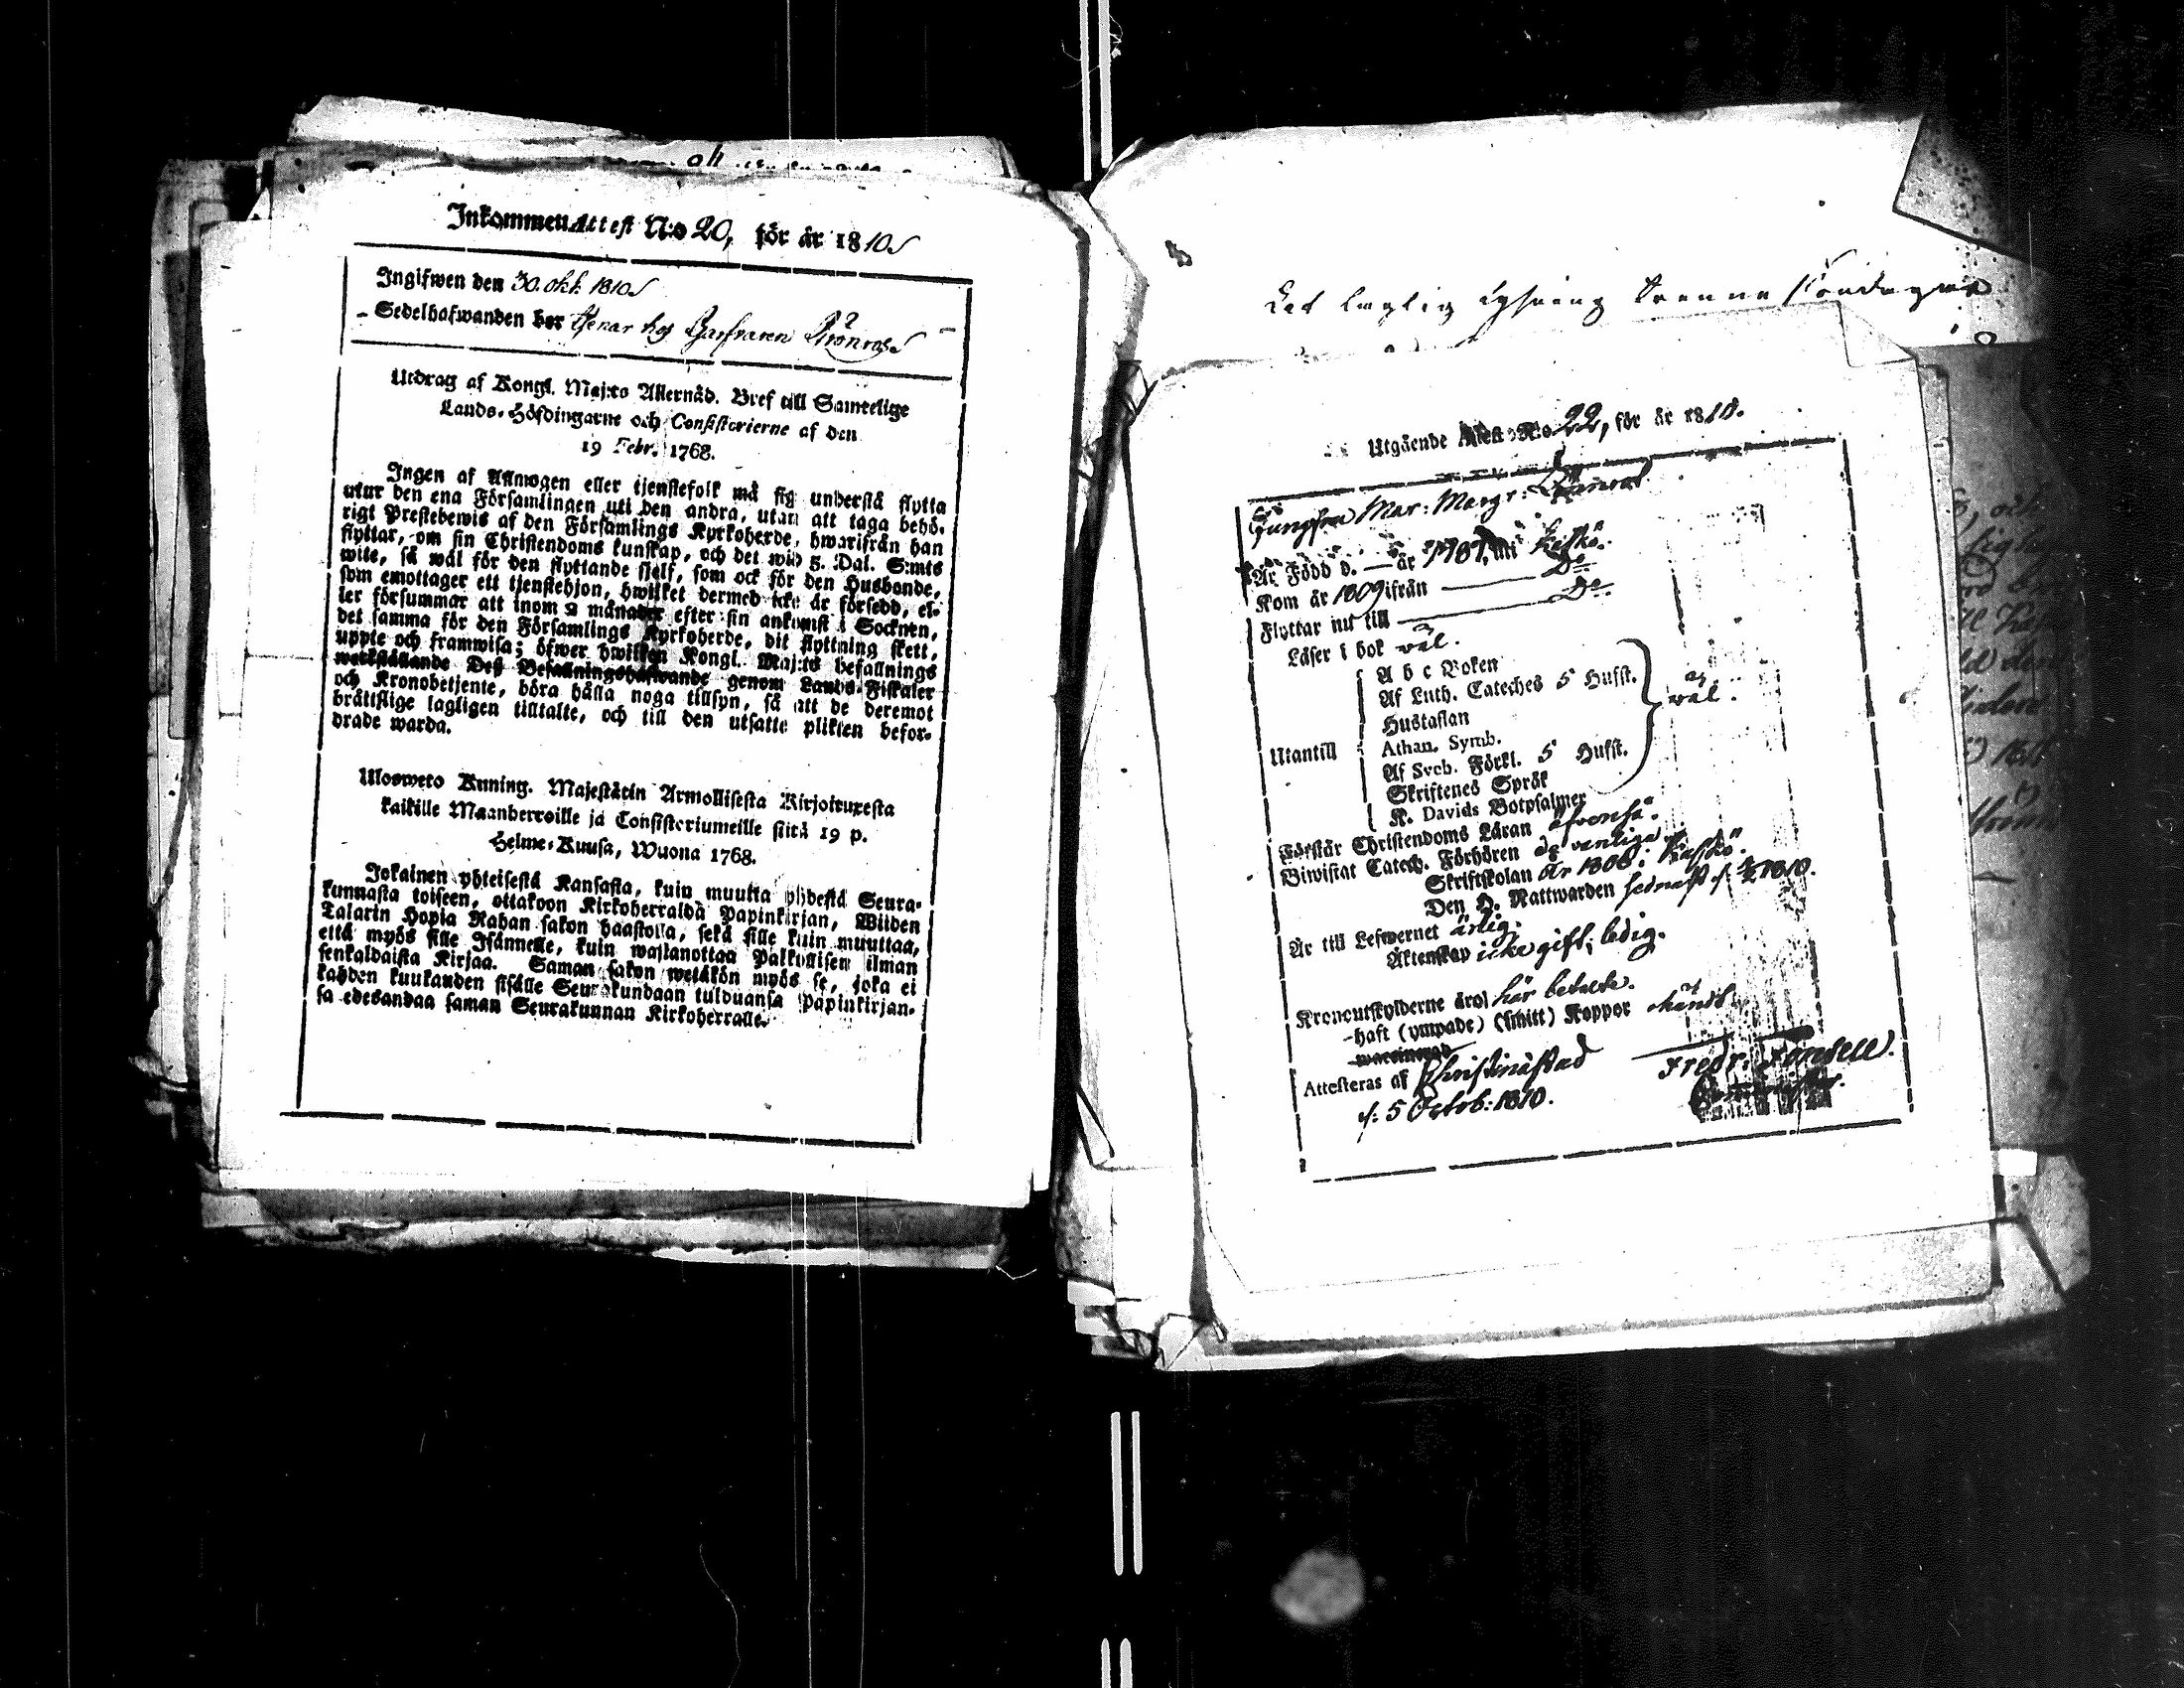 Inkommen Attest N:o 20, för år 1810
Ingifwen den 30. okt. 1810
Sedelhafwanden bor tjenar hos Garfvaren Grönroos
Utdrag af Kongl. Maj:ts Allernåd. Bref till Samtelige
Lands-Höfdingarne och Consistorierne af den
19 Febr. 1768.
Ingen af Allmogen eller tjenstefolk må sig understå flytta
utur den ena Församlingen uti den andra, utan att taga behö-
rigt Prestebewis af den Församlings Kyrkoherde, hwarifrån han
flyttar, om sin Christendoms kunskap, och det wid 5. Dal. S:mts
wite, så wäl för den flyttande sjelf, som ock för den Husbonde,
som emottager ett tjenstehjon, hwilket dermed icke är försedd, el-
ler försummar att inom 2 månader efter sin ankomst i Socknen,
det samma för den Församlings Kyrkoherde, dit flyttning skett,
uppte och framwisa; öfwer hwilken Kongl. Maj:ts befallnings
werkställande Dess Befallningshafwande genom Lands-Fiskaler
och Kronobetjente, böra hålla noga tillsyn, så att de deremot
bråttslige lagligen tilltalte, och till den utsatte plikten befor-
drade warda.
Ulosweto Kuning. Majestätin Armollisesta Kirjoituxesta
kaikille Maanherroille ja Consistoriumeille siitä 19 p.
Helme-Kuusa, Wuona 1768.
Jokainen yhteisestä Kansasta, kuin muutta yhdestä Seura-
kunnasta toiseen, ottakoon Kirkoherralda Papinkirjan, Wiiden
Talarin Hopia Rahan sakon haastolla, sekä sille kuin muuttaa,
että myös sille Isännelle, kuin wastanottaa Palkollisen ilman
senkaldaista Kirjaa. Saman sakon wetäkön myös se, joka ei
kahden kuukauden sisälle Seurakundaan tulduansa Papinkirjan-
sa edesandaa saman Seurakunnan Kirkoherralle.
Utgående Attest N:o 22, för år 1810.
Jungfru Mar: Margr:
Är Född d. — år 1787, uti Kaskö.
Kom år 1809 ifrån — Do
Flyttar nu till — Do
Läser i bok wäl.
A b c Boken
Af Luth. Cateches 5 Hufst.
Hustaflan
wäl.
Utantill
Athan. Symb.
Af Sveb. Förkl. 5 Hufst.
Skriftenes Språk
K. Davids Botpsalmer
Förstår Christendoms Läran
Biwistat Catech. Förhören
Skriftskolan år 1808 i Kaskö.
Den H. Nattwarden sednast d. 1810.
Är till Lefwernet ärlig.
Äktenskap icke gift; ledig.
Kronoutskylderne äro här betalte.
haft (ympade) (smitt) Koppor
Attesteras af Christinæstad
d. 5 Octob: 1810.
Fredr: